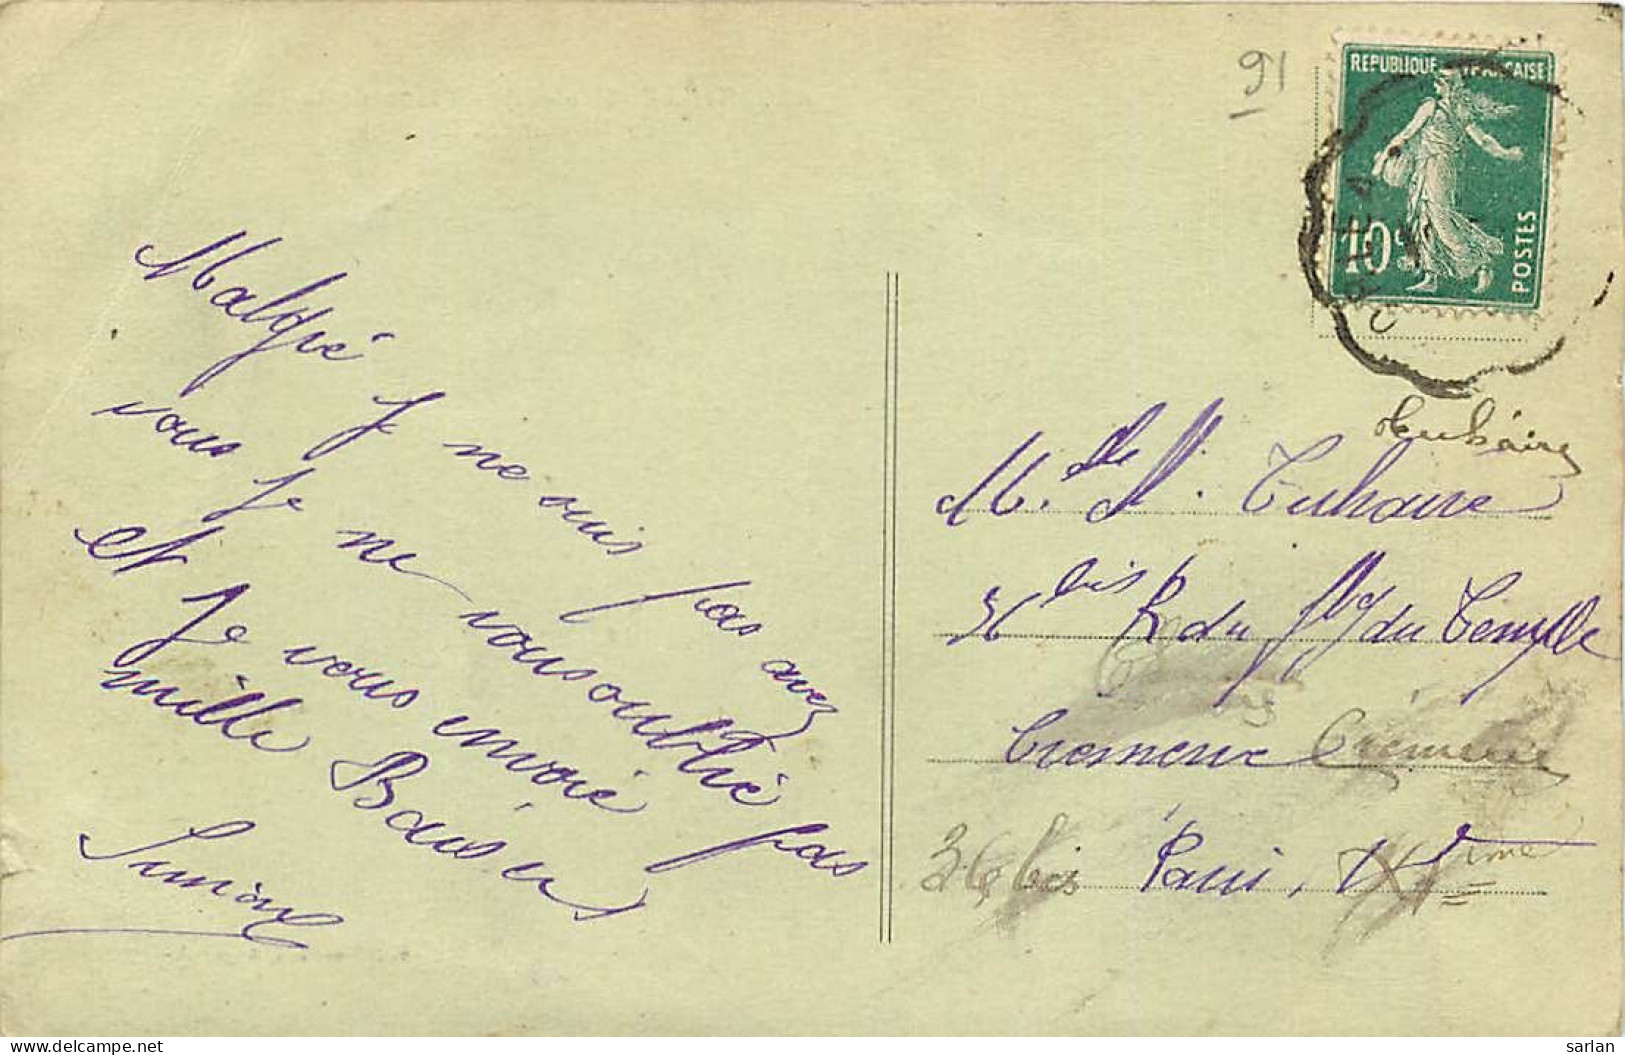 91
REPUBLIQUE FRANÇAISE
10c
POSTES
Malgré Je ne suis pas avez
vous Je ne vous oublié pas
et Je vous envoié
mille Baisers
Simone
M. elle M. Tuhaire
36 bis R du fbg du Temple
Cremerie Crèmerie
36 bis Paris, XIème
delcampe.net
sarlan